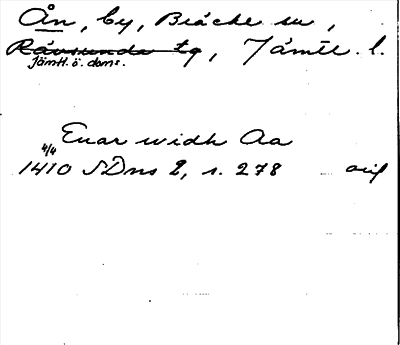 Ån, by, Bräcke sn,
Rävsunds tg, Jämtl. l.
Jämtl. ö. doms.
Enar widh Aa
4/4
1410 SDns 2, s. 278 orig